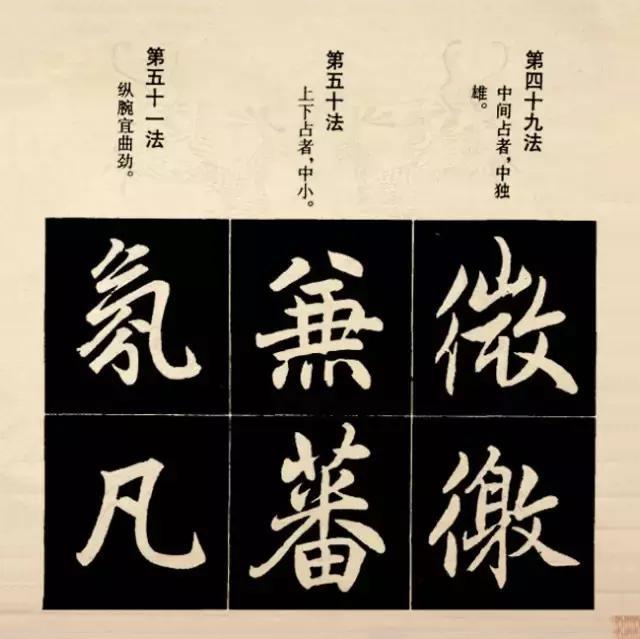 第四十九法
中间占者，中独
雄。
微
徼
第五十法
上下占者，中小。
兼
蕃
第五十一法
纵腕宜曲劲。
氛
凡